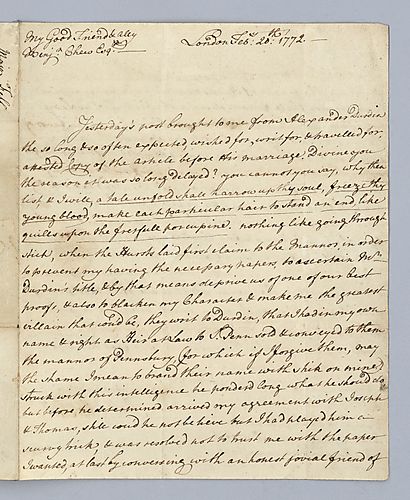 My Good Friend
Benjn. Chew Esqr.
London Feby. 28th. 1772.
Yesterday's post brought to me from Alexander Durdin
the so long & so often expected, wished for, writ for, & travelled for,
attested Copy of the article before His marriage. Divine you
the reason it was so long delayed? you cannot you say, why then
list & I wile, a tale unfold shall harrow up thy soul, freeze thy
young blood, make each particular hair to stand an end like
quills upon the fretfull porcupine. nothing like going through
stick, when the Hursts laid first claim to the Mannor, in order
to prevent my having the necessary papers, to ascertain Mrs.
Durdin's title, & by that means deprive us of one of our best
proofs, & also to blacken my Character & make me the greatest
villain that could be, they writ to Durdin, that I had in my own
name & right as Heir at Law to S. Penn sold & conveyed to them
the mannor of Pennsbury (for which if I forgive them, may
the shame I mean to brand their name with stik on mine)
Struck with this intelligence he ponderd long what he should do
but before he determined arrived my agreement with Joseph
& Thomas, still could he not believe but I had played him a
scurvy trick, & was resolved not to trust me with the paper
I wanted, at last by conversing with an honest jovial friend of